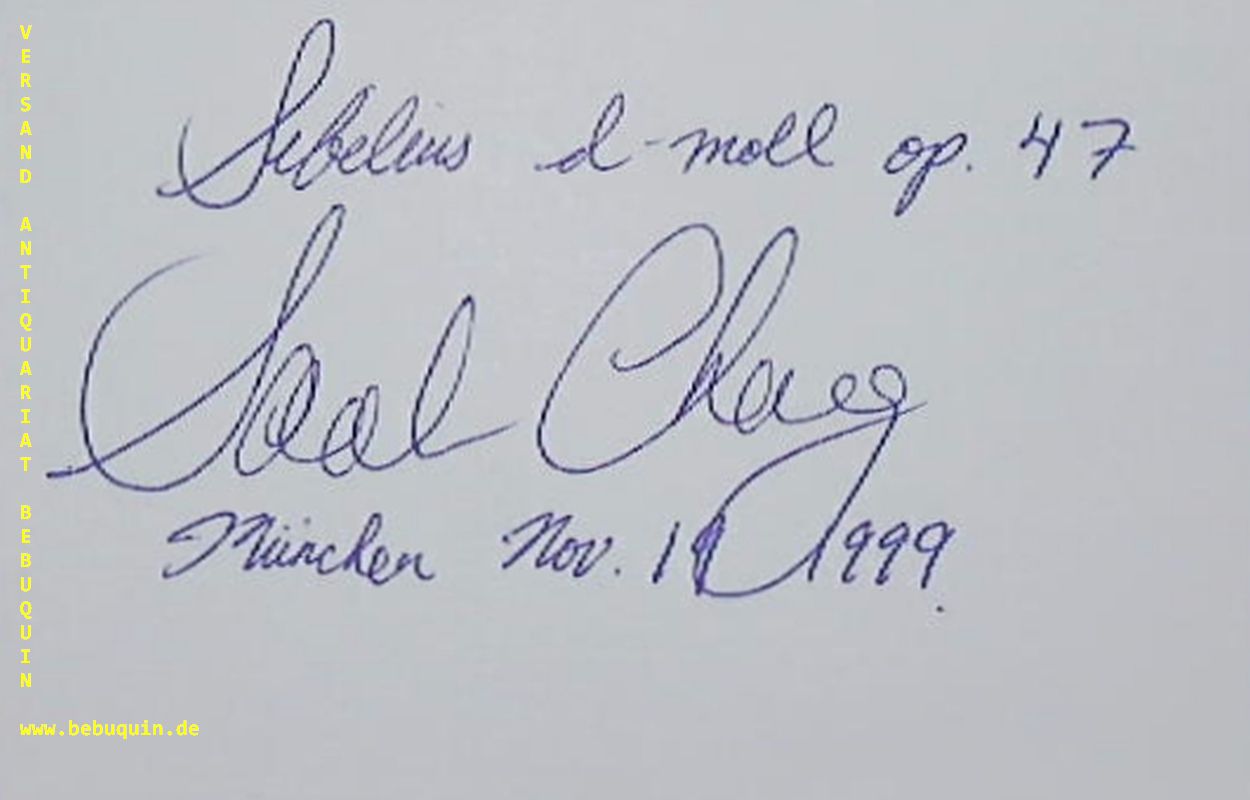 Sibelius d-moll op. 47
Sarah Chang
München Nov. 1999.
VERSAND ANTIQUARIAT BEBUQUIN
www.bebuquin.de